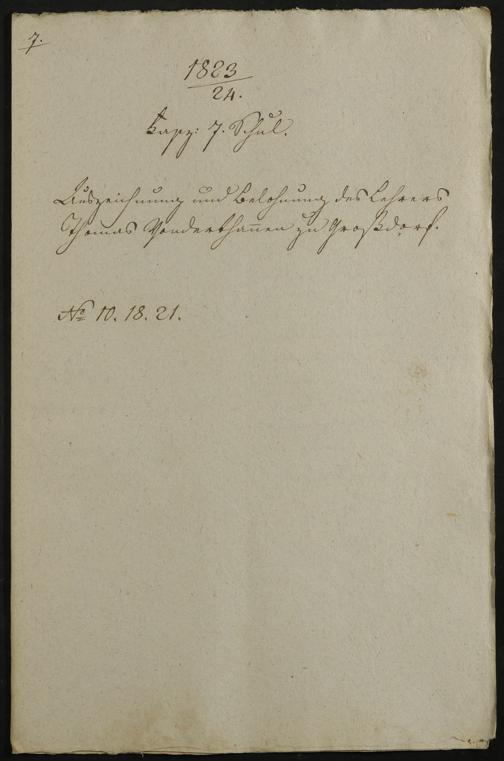 7.
1823
24.
Fasz: 7. Schul.
Auszeichnung und Belohnung des Lehrers
Thomas Vonderthannen zu Großdorf.
No 10. 18. 21.